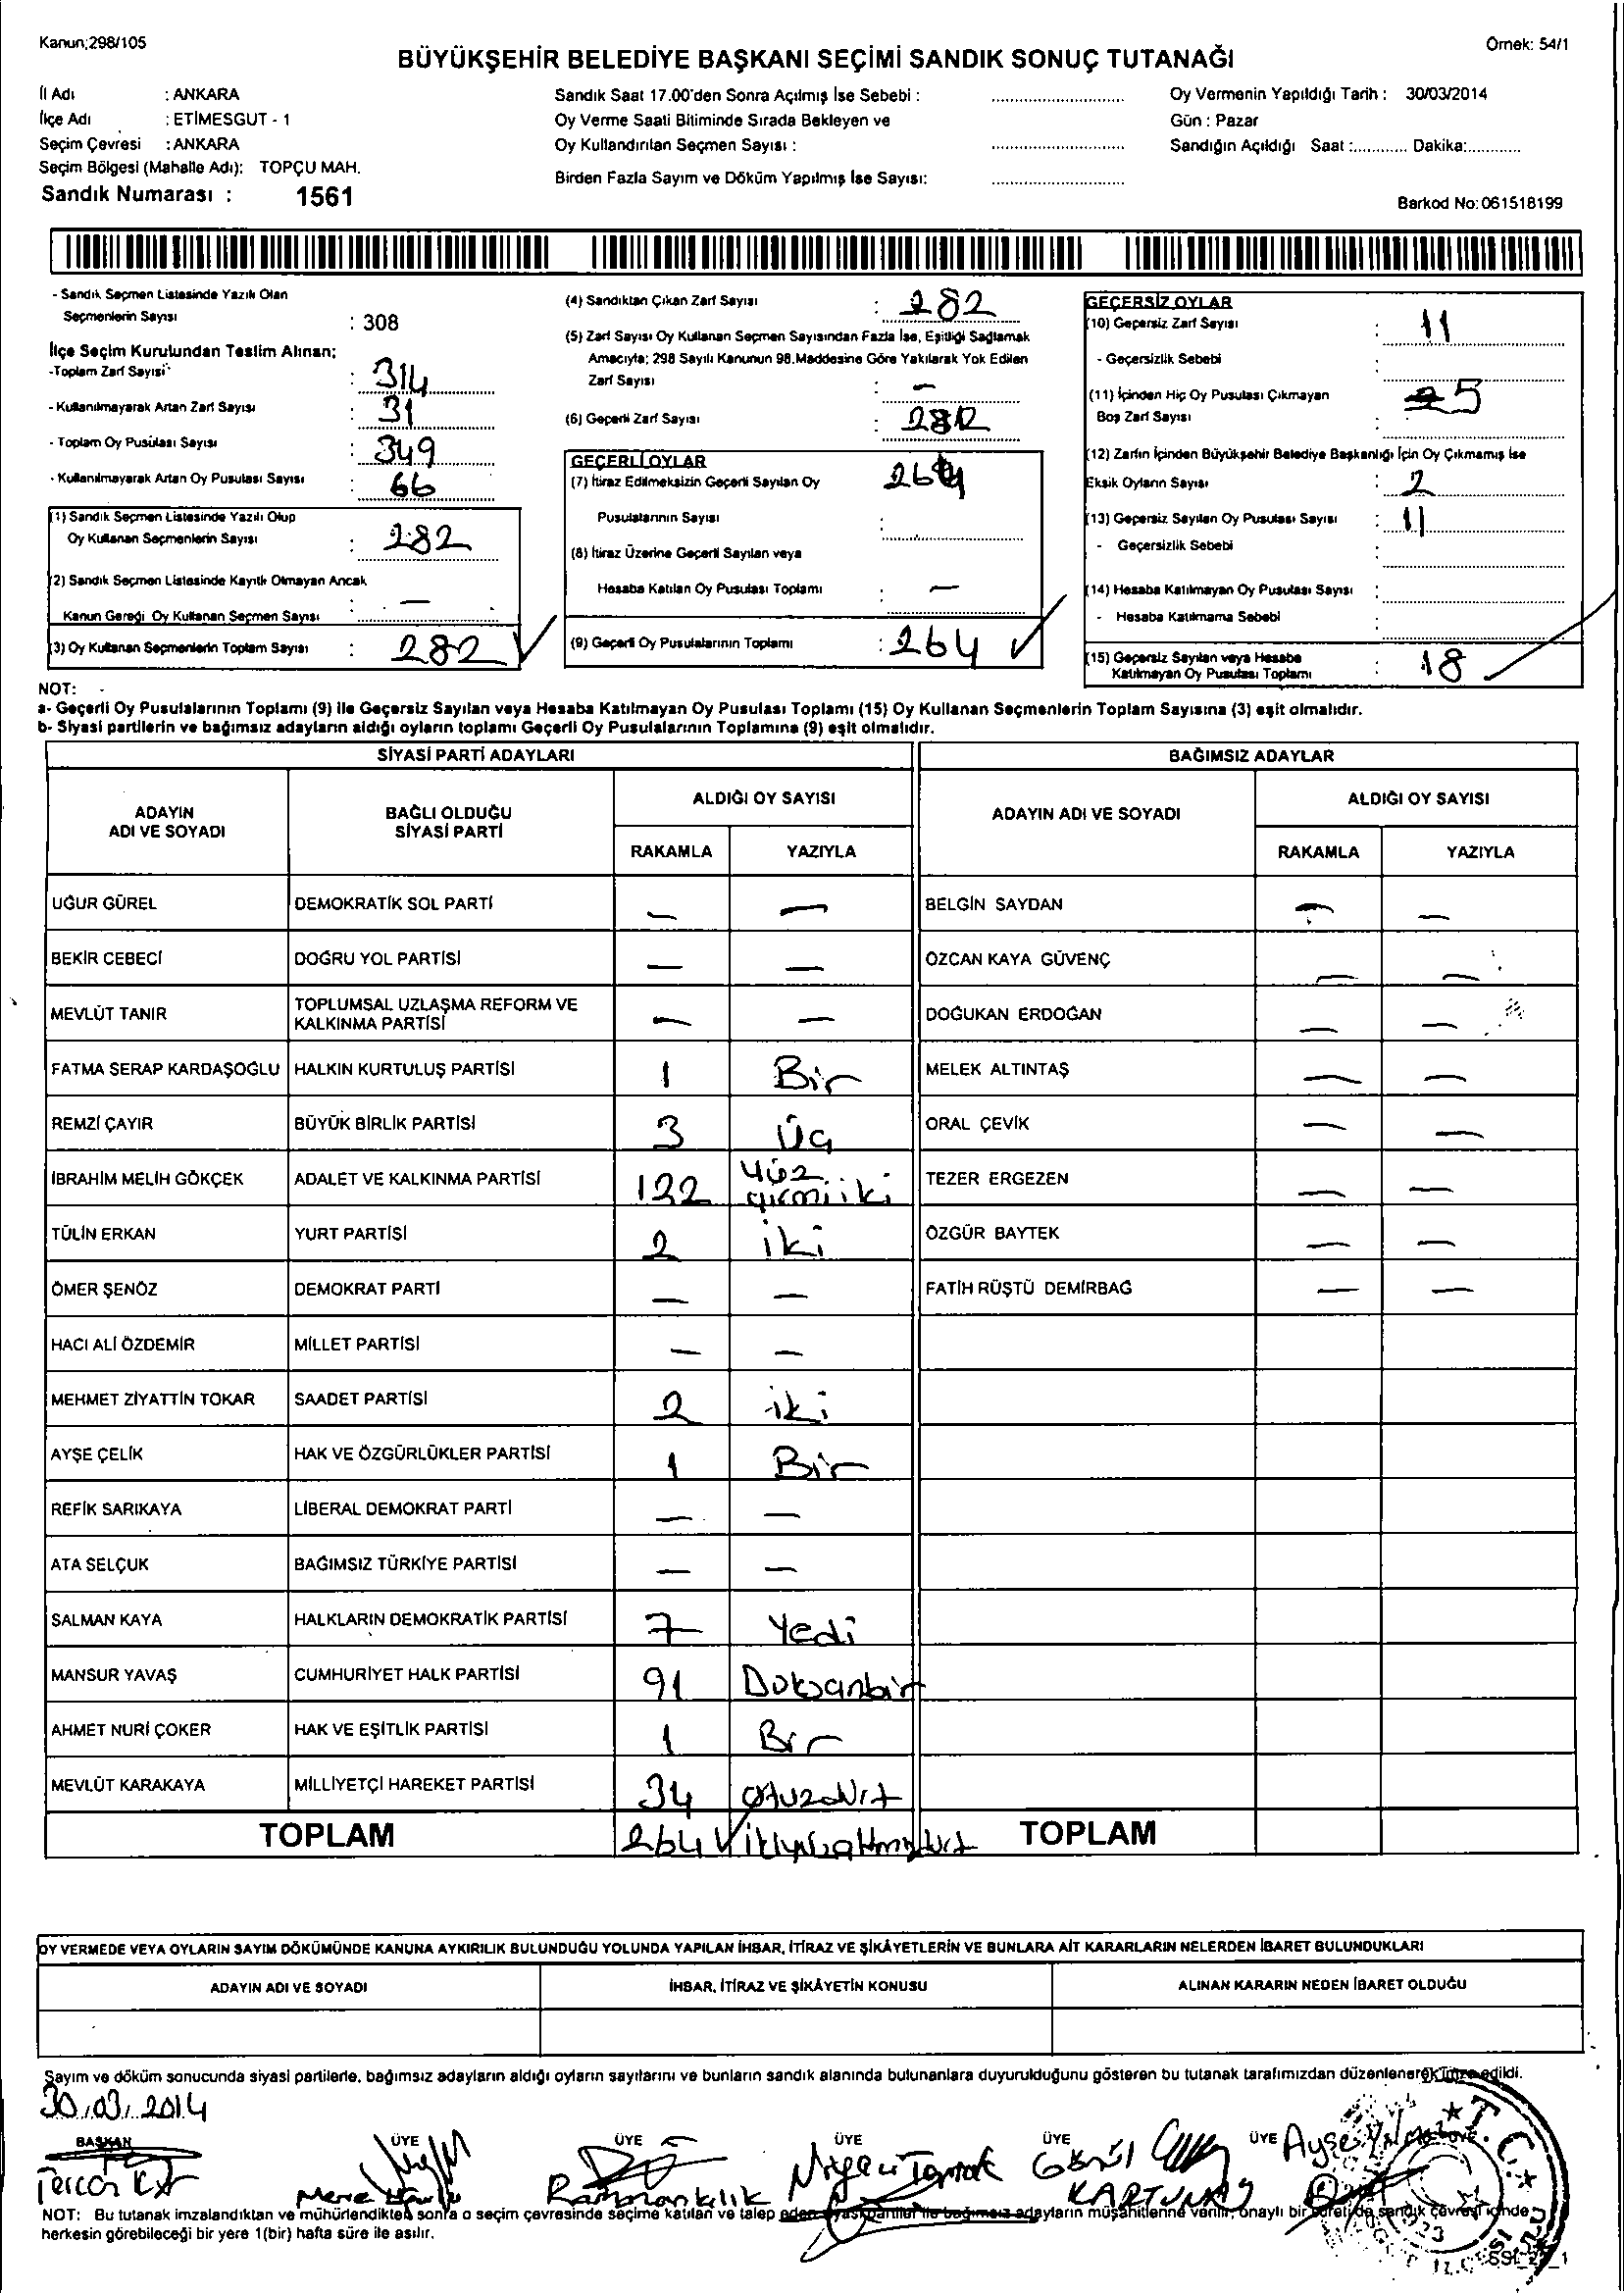 Kanun;298/105
Örnek: 54/1
BÜYÜKŞEHİR BELEDİYE BAŞKANI SEÇİMİ SANDIK SONUÇ TUTANAĞI
İl Adı : ANKARA
İlçe Adı : ETİMESGUT - 1
Seçim Çevresi : ANKARA
Seçim Bölgesi (Mahalle Adı): TOPÇU MAH.
Sandık Numarası : 1561
Sandık Saat 17.00'den Sonra Açılmış İse Sebebi :
Oy Verme Saati Bitiminde Sırada Bekleyen ve
Oy Kullandırılan Seçmen Sayısı :
Birden Fazla Sayım ve Döküm Yapılmış İse Sayısı:
Oy Vermenin Yapıldığı Tarih : 30/03/2014
Gün : Pazar
Sandığın Açıldığı Saat :............ Dakika:............
Barkod No:061518199
- Sandık Seçmen Listesinde Yazılı Olan
Seçmenlerin Sayısı : 308
İlçe Seçim Kurulundan Teslim Alınan;
-Toplam Zarf Sayısı : 314
- Kullanılmayarak Artan Zarf Sayısı : 31
- Toplam Oy Pusulası Sayısı : 349
- Kullanılmayarak Artan Oy Pusulası Sayısı : 66
(1) Sandık Seçmen Listesinde Yazılı Olup
Oy Kullanan Seçmenlerin Sayısı : 282
(2) Sandık Seçmen Listesinde Kayıtlı Olmayan Ancak
Kanun Gereği Oy Kullanan Seçmen Sayısı : —
(3) Oy Kullanan Seçmenlerin Toplam Sayısı : 282
(4) Sandıktan Çıkan Zarf Sayısı : 282
(5) Zarf Sayısı Oy Kullanan Seçmen Sayısından Fazla İse, Eşitliği Sağlamak
Amacıyla; 298 Sayılı Kanunun 98.Maddesine Göre Yakılarak Yok Edilen
Zarf Sayısı : —
(6) Geçerli Zarf Sayısı : 282
GEÇERLİ OYLAR
(7) İtiraz Edilmeksizin Geçerli Sayılan Oy 264
Pusulalarının Sayısı :
(8) İtiraz Üzerine Geçerli Sayılan veya
Hesaba Katılan Oy Pusulası Toplamı : —
(9) Geçerli Oy Pusulalarının Toplamı : 264
GEÇERSİZ OYLAR
(10) Geçersiz Zarf Sayısı : 11
- Geçersizlik Sebebi :
(11) İçinden Hiç Oy Pusulası Çıkmayan 5
Boş Zarf Sayısı :
(12) Zarfın İçinden Büyükşehir Belediye Başkanlığı İçin Oy Çıkmamış İse
Eksik Oyların Sayısı : 2
(13) Geçersiz Sayılan Oy Pusulası Sayısı : 11
- Geçersizlik Sebebi :
(14) Hesaba Katılmayan Oy Pusulası Sayısı :
- Hesaba Katılmama Sebebi :
(15) Geçersiz Sayılan veya Hesaba
Katılmayan Oy Pusulası Toplamı : 18
NOT: -
a- Geçerli Oy Pusulalarının Toplamı (9) ile Geçersiz Sayılan veya Hesaba Katılmayan Oy Pusulası Toplamı (15) Oy Kullanan Seçmenlerin Toplam Sayısına (3) eşit olmalıdır.
b- Siyasi partilerin ve bağımsız adayların aldığı oyların toplamı Geçerli Oy Pusulalarının Toplamına (9) eşit olmalıdır.
SİYASİ PARTİ ADAYLARI
BAĞIMSIZ ADAYLAR
ADAYIN
ADI VE SOYADI
BAĞLI OLDUĞU
SİYASİ PARTİ
ALDIĞI OY SAYISI
RAKAMLA YAZIYLA
ADAYIN ADI VE SOYADI
ALDIĞI OY SAYISI
RAKAMLA YAZIYLA
UĞUR GÜREL DEMOKRATİK SOL PARTİ — — BELGİN SAYDAN — —
BEKİR CEBECİ DOĞRU YOL PARTİSİ — — ÖZCAN KAYA GÜVENÇ — —
MEVLÜT TANIR TOPLUMSAL UZLAŞMA REFORM VE
KALKINMA PARTİSİ — — DOĞUKAN ERDOĞAN — —
FATMA SERAP KARDAŞOĞLU HALKIN KURTULUŞ PARTİSİ 1 Bir MELEK ALTINTAŞ — —
REMZİ ÇAYIR BÜYÜK BİRLİK PARTİSİ 3 Üç ORAL ÇEVİK — —
İBRAHİM MELİH GÖKÇEK ADALET VE KALKINMA PARTİSİ 122 yüz yirmi iki TEZER ERGEZEN — —
TÜLİN ERKAN YURT PARTİSİ 2 iki ÖZGÜR BAYTEK — —
ÖMER ŞENÖZ DEMOKRAT PARTİ — — FATİH RÜŞTÜ DEMİRBAĞ — —
HACI ALİ ÖZDEMİR MİLLET PARTİSİ — —
MEHMET ZİYATTİN TOKAR SAADET PARTİSİ 2 iki
AYŞE ÇELİK HAK VE ÖZGÜRLÜKLER PARTİSİ 1 Bir
REFİK SARIKAYA LİBERAL DEMOKRAT PARTİ — —
ATA SELÇUK BAĞIMSIZ TÜRKİYE PARTİSİ — —
SALMAN KAYA HALKLARIN DEMOKRATİK PARTİSİ 7 Yedi
MANSUR YAVAŞ CUMHURİYET HALK PARTİSİ 91 Doksanbir
AHMET NURİ ÇOKER HAK VE EŞİTLİK PARTİSİ 1 Bir
MEVLÜT KARAKAYA MİLLİYETÇİ HAREKET PARTİSİ 34 otuzdört
TOPLAM 264 ikiyüzaltmışdört TOPLAM
OY VERMEDE VEYA OYLARIN SAYIM DÖKÜMÜNDE KANUNA AYKIRILIK BULUNDUĞU YOLUNDA YAPILAN İHBAR, İTİRAZ VE ŞİKÂYETLERİN VE BUNLARA AİT KARARLARIN NELERDEN İBARET BULUNDUKLARI
ADAYIN ADI VE SOYADI İHBAR, İTİRAZ VE ŞİKÂYETİN KONUSU ALINAN KARARIN NEDEN İBARET OLDUĞU
Sayım ve döküm sonucunda siyasi partilerle, bağımsız adayların aldığı oyların sayılarını ve bunların sandık alanında bulunanlara duyurulduğunu gösteren bu tutanak tarafımızdan düzenlenerek imza edildi.
30.03.2014
BAŞKAN ÜYE ÜYE ÜYE ÜYE ÜYE
Ramazan kılık
KARTUNAY
Ayşe
T.C.
NOT: Bu tutanak imzalandıktan ve mühürlendikten sonra o seçim çevresinde seçime katılan ve talep eden siyasi partiler ile bağımsız adayların müşahitlerine verilir, onaylı bir sureti de sandık çevresi içinde
herkesin görebileceği bir yere 1(bir) hafta süre ile asılır.